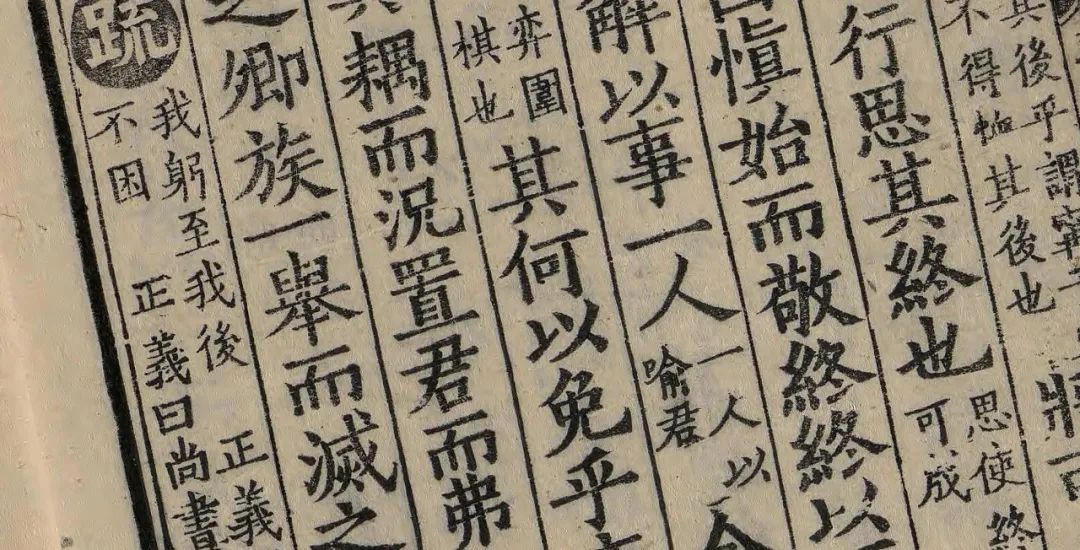 其後乎謂甯
不得恤其後也
將可
行思其終也
思使終
可成
慎始而敬終終以
解以事一人
一人以
喻君
弈圍
棋也
其何以免乎
其耦而況置君而弗
之卿族一舉而滅之
疏
我躬至我後 正義
不困 正義曰尚書